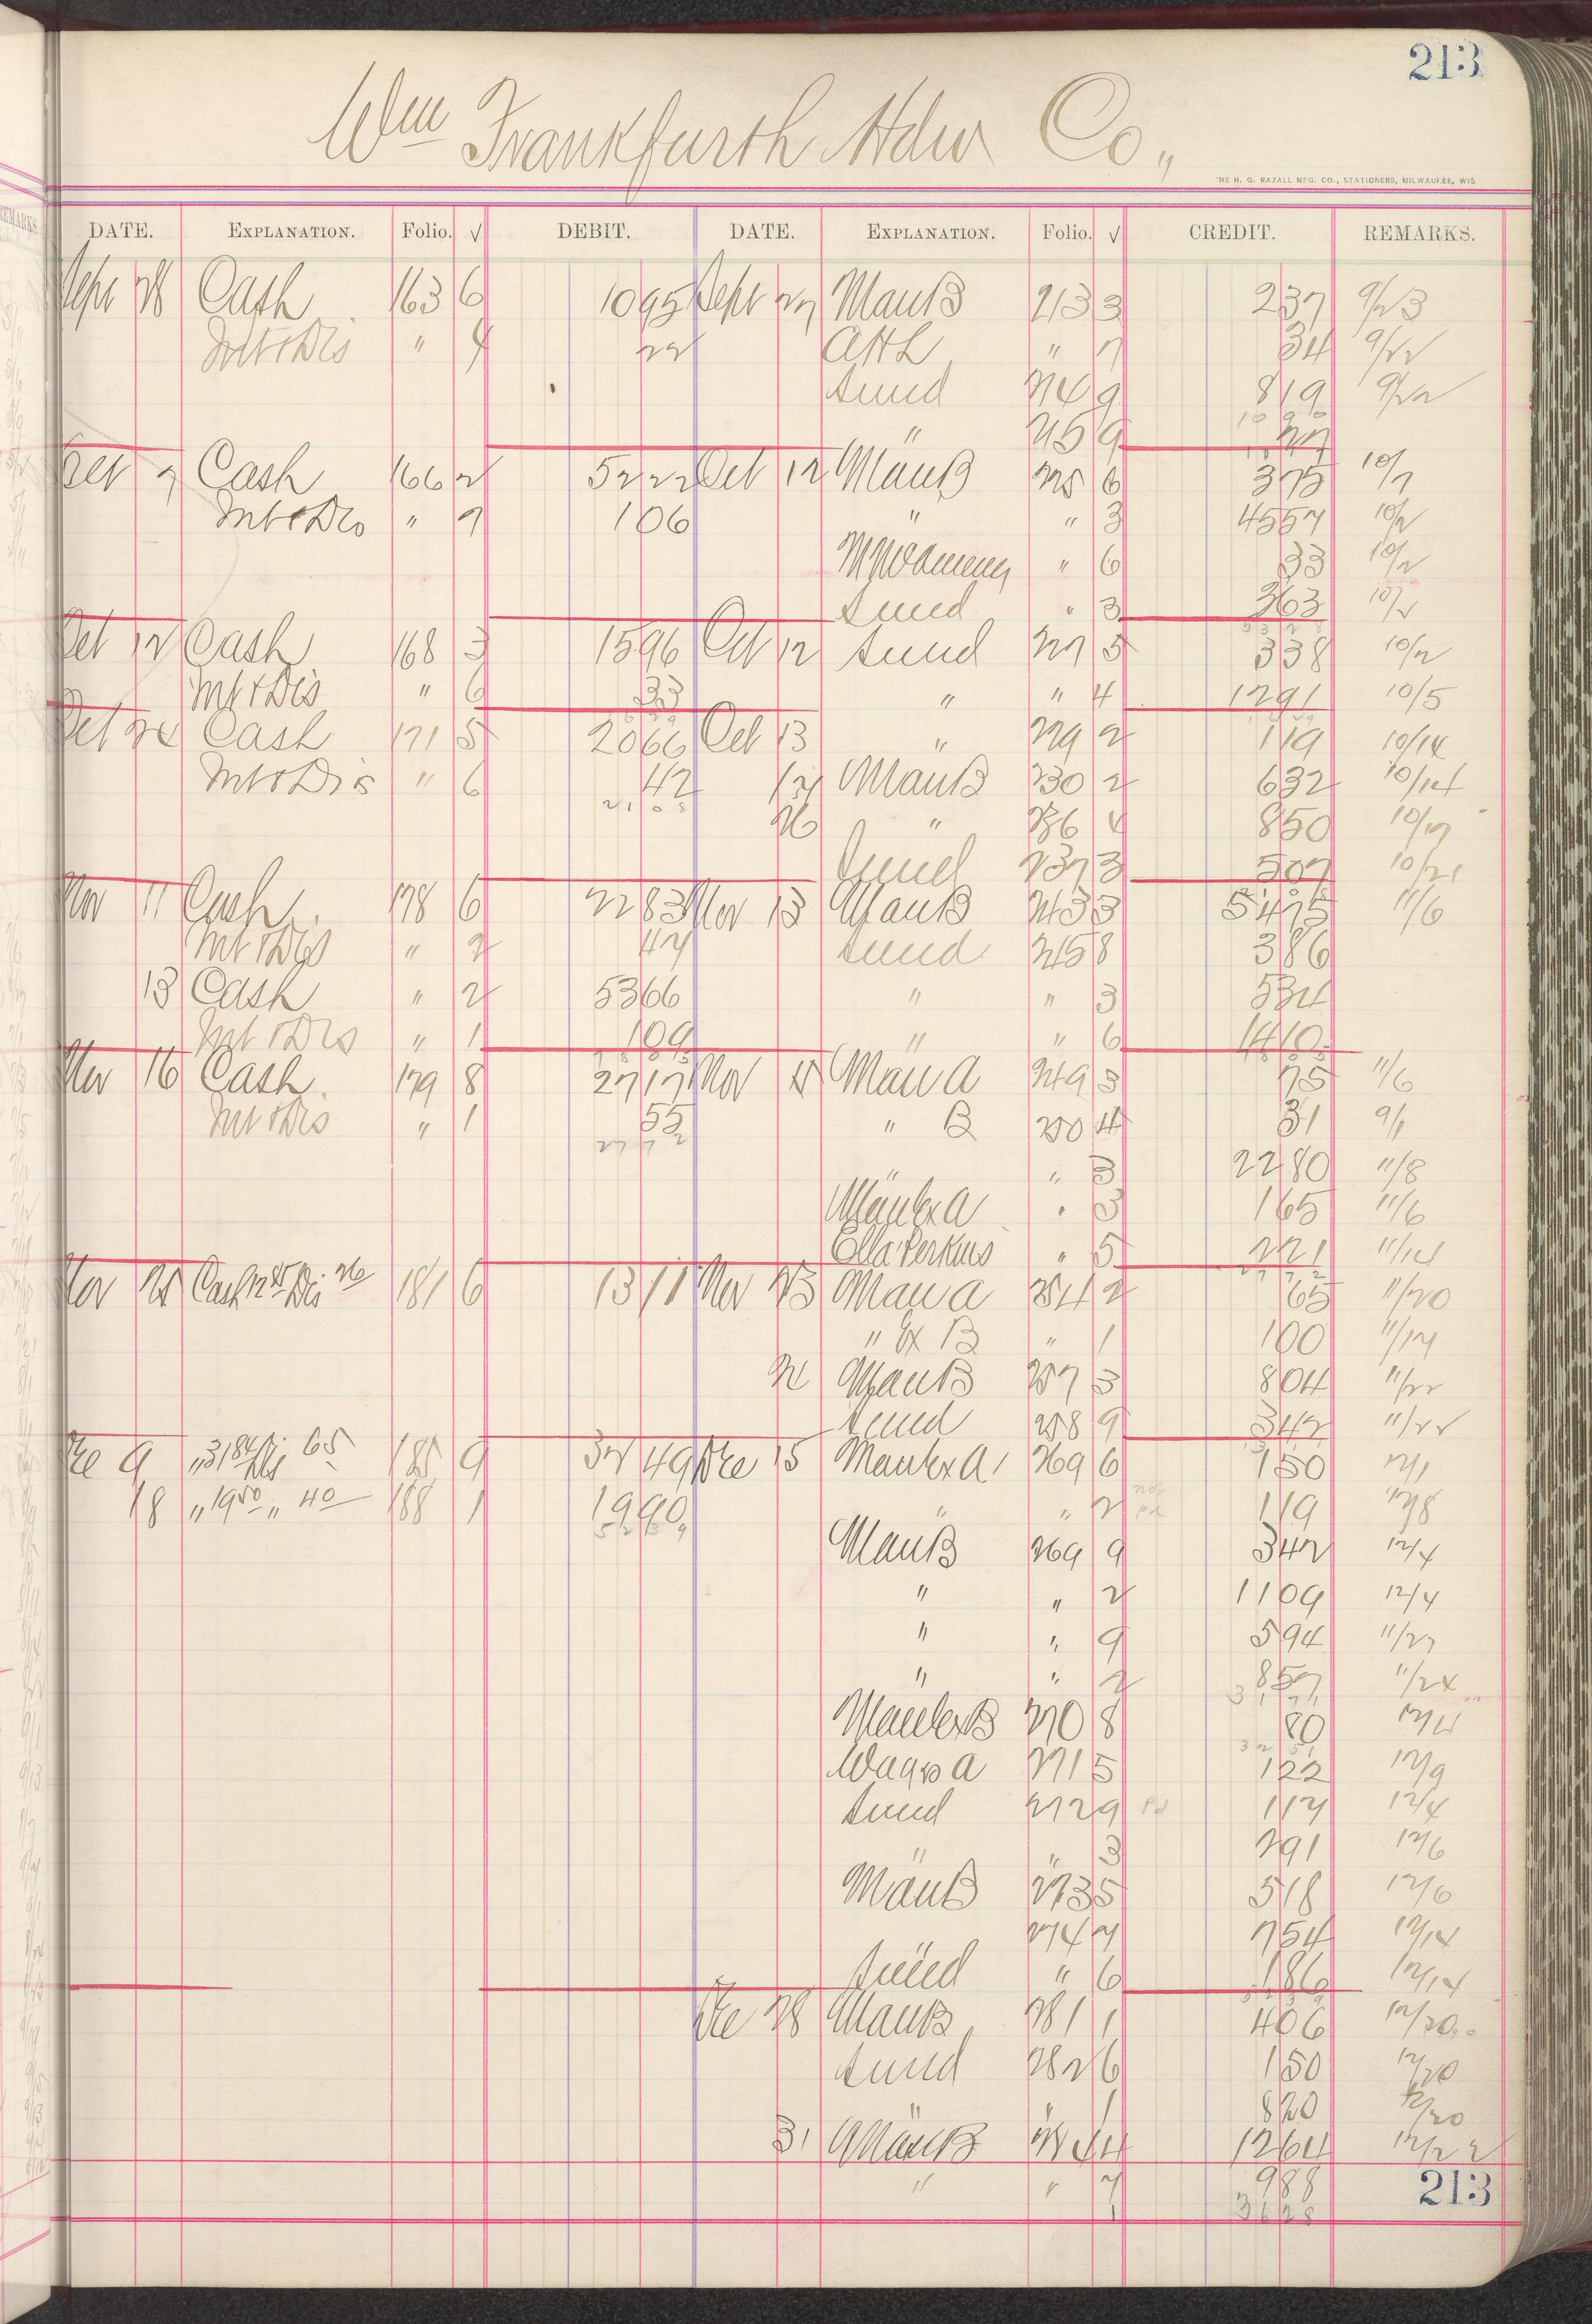 213
Wm Frankfurth Hdw Co.,
THE H. G. RAZALL MFG. CO., STATIONERS, MILWAUKEE, WIS.
DATE. EXPLANATION. Folio. √ DEBIT. DATE. EXPLANATION. Folio. √ CREDIT. REMARKS.
Sept 28 Cash 163 6 1095 Sept 27 Man B 213 3 237 9/23
Int & Dis " 4 22 " 7 34 9/22
Sund 214 9 819 9/22
" 215 9 27
Oct 7 Cash 166 2 5222 Oct 12 Man B 225 6 375 10/7
Int & Dis " 7 106 " " 3 4557 10/2
" 6 33 10/2
Sund " 3 363 10/2
Oct 12 Cash 168 3 1596 Oct 12 Sund 227 5 338 10/2
Int & Dis " 6 33 " " 4 1291 10/5
Oct 24 Cash 171 5 2066 Oct 13 " 229 2 119 10/14
Int & Dis " 6 42 17 Man B 230 2 632 10/14
2108
26 " 236 4 850 10/17
Sund 237 3 507 10/21
Nov 11 Cash 178 6 2283 Nov 13 Man B 243 3 5475 11/6
Int & Dis " 2 47 Sund 245 8 386
13 Cash " 2 5366 " " 3 534
Int & Dis " 1 109 " " 6 1410
Nov 16 Cash 179 8 2717 Nov Man A 249 3 75 11/6
Int & Dis " 1 55 " B 250 4 81 9/1
2772
" " 3 2280 11/8
Man Ex A " 3 165 11/6
Ella Perkins " 5 221 11/14
Nov 25 Cash 1285 Dis 26 181 6 1311 Nov 23 Man A 254 2 65 11/20
" Ex B " 1 100 11/17
Man B 257 3 804 11/22
Sund 258 9 342 11/22
Dec 9 " 3184 Dis 65 185 9 3249 Dec 15 Man Ex A 269 6 150 12/1
18 " 1950 " 40 188 1 1990 " " 2 not pd 119 12/8
5239
Man B 269 9 342 12/4
" " 2 1109 12/4
" " 9 594 11/27
" " 2 857 11/24
3171
Man Ex B 270 8 80 12/11
3251
A 271 5 122 12/9
Sund 272 9 Pd 117 12/4
" " 3 291 12/6
Man B 273 5 518 12/6
274 7 754 12/14
Sund " 6 186 12/14
Dec 28 Man B 281 1 406 12/20
Sund 282 6 150 12/20
" " 1 820 12/20
31 Man B 284 4 1264 12/22
" " 7 988
1 3628
213